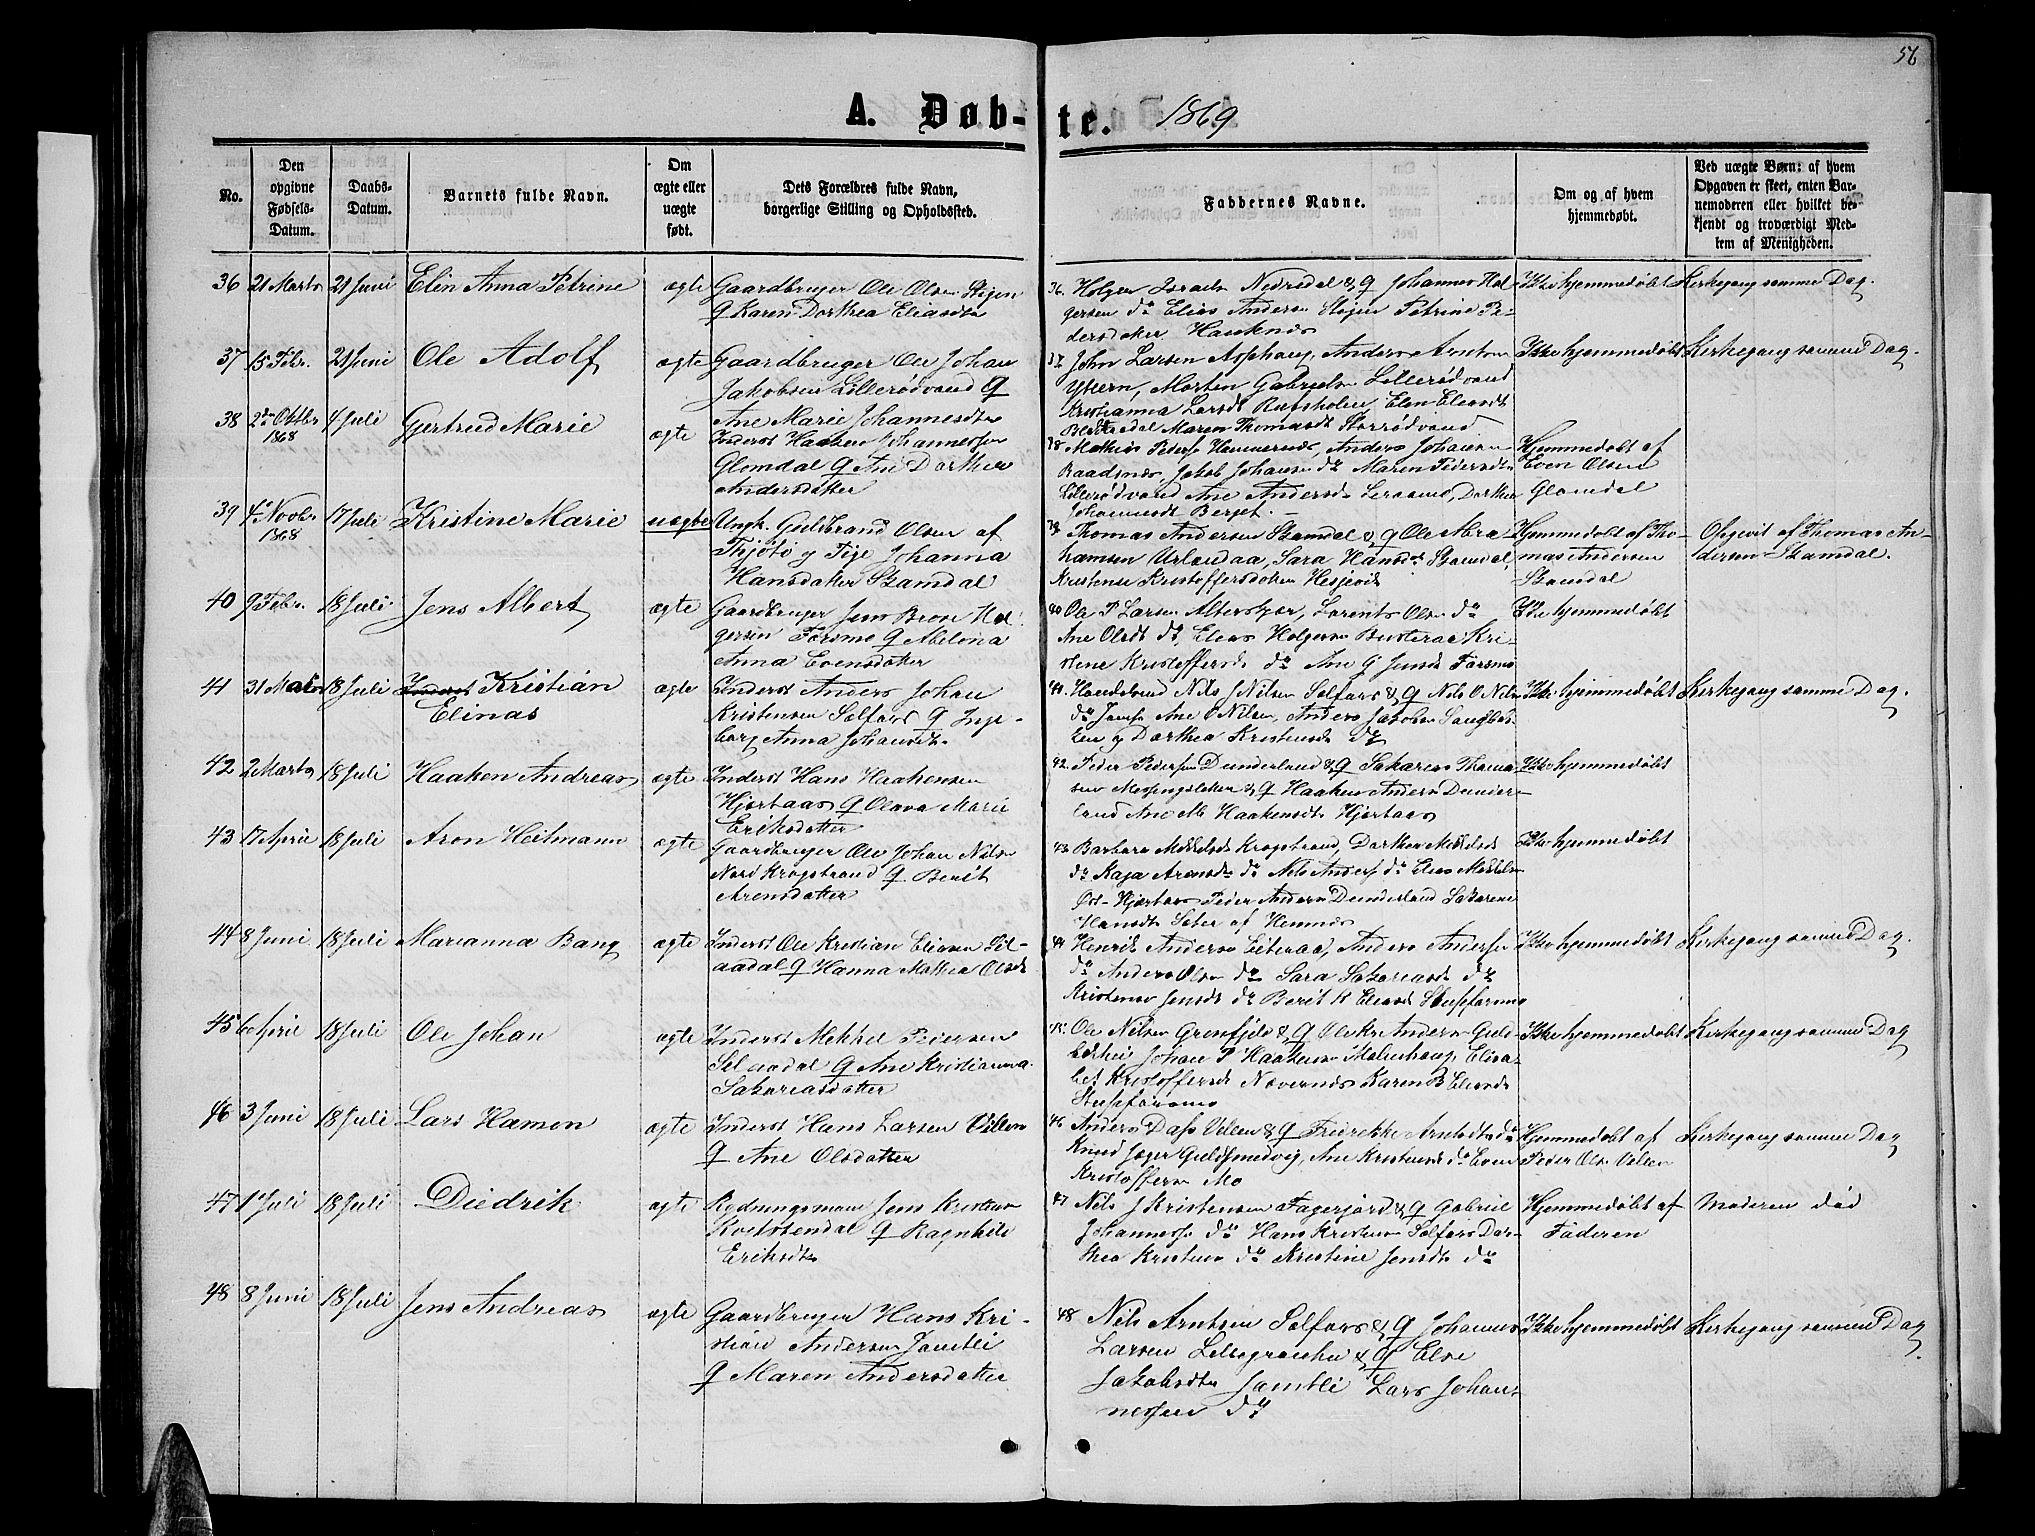 56
A. Døb-te. 1869
No.
Den opgivne Fødsels-Datum.
Daabs-Datum.
Barnets fulde Navn.
Om ægte eller uægte født.
Dets Forældres fulde Navn, borgerlige Stilling og Opholdssted.
Faddernes Navne.
Om og af hvem hjemmedøbt.
Ved uægte Børn: af hvem Opgaven er skeet, enten Barnemoderen eller hvilket bekjendt og troværdigt Medlem af Menigheden.
36 21 Marts 21 Juni Elen Anna Petrine ægte Gaardbruger Ole Olsen Stigen
Q Karen Dorthea Eliasdtr
36. Holger Nedredal & Q Johannes Hol-
gersen do Elias Andersen Stigen Petrine Pe-
dersdatter Hauknes
Ikke hjemmedøbt Kirkegang samme Dag.
37 15 Febr. 21 Juni Ole Adolf ægte Gaardbruger Ole Johan
Jakobsen Lillerødvand Q
Ane Marie Johannesdtr
37. John Larsen Asphaug, Anders Arntsen
Yttern, Morten Gabrielsen Lillerødvand
Kristianna Larsdt Elen Eliasdt
Maren Thomasdt Storrødvand
Ikke hjemmedøbt Kirkegang samme Dag.
38 2den Oktbr 1868 4 Juli Gjertrud Marie ægte Inderst Haaken Johannessen
Glomdal Q Ane Dorthea
Andersdatter
38 Mathias Peders Hammernes, Anders Johansen
Raadsnes, Jakob Johansen do Maren Pedersdtr
Lillerødvand Ane Andersdt Dorthea
Johannesdt Berget. -
Hjemmedøbt af
Even Olsen
Glomdal
39 4 Novbr 1868 17 Juli Kristine Marie uægte Ungk. Guldbrand Olsen af
Thjøtø g Pige Johanna
Hansdatter Skamdal
39. Thomas Andersen Skamdal & Q Ole Abra-
hamsen Urlandaa, Sara Hansdt Skamdal,
Kristoffersdatter Hesjevik
Hjemmedøbt af Tho-
mas Andersen
Skamdal
Opgevit af Thomas An-
dersen Skamdal.
40 9 Febr. 18 Juli Jens Albert ægte Gaardbruger Jens Hol-
gersen Forsmo Q Abelona
Anna Evensdatter
40 Ole P Larsen Lorents Olsen do
Ane Olsdt do, Elias Holgersen Busteraa Kri-
stene Kristoffersdt do Ane G Jensdt Forsmo
Ikke hjemmedøbt
41 31 Marts 18 Juli Kristian
Elinas ægte Inderst Anders Johan
Kristensen Selfors Q Inge-
borg Anna Johansdt.
41. Nils J Nilsen Selfors & Q Nils O Nilsen
do Ane O Nilsen, Anders Jakobsen
g Dorthea Kristensdt do
Ikke hjemmedøbt Kirkegang samme Dag.
42 2 Marts 18 Juli Haaken Andreas ægte Inderst Hans Haakensen
Hjertaas Q Olava Marie
Eriksdatter
42. Peder Pedersen Dunderland & Q Sakarias Thoma-
sen Messingsletten & Q Haaken Anders Dunder-
land Ane M. Haakensdt Hjertaas
Ikke hjemmedøbt
43 17 April 18 Juli Aron Heitmann ægte Gaardbruger Ole Johan Nilsen
Nord Krogstrand Q Berit
Arensdatter
43. Barbara Mekkelsdt Krogstrand, Dorthea Mekkelsdt
do Kaja Arensdt do Nils Anders do Elias Mekkelsen
Øst-Hjertaas Peder Anders Dunderland Sakarine
Hansdt Sæter af Hemnes
Ikke hjemmedøbt
44 8 Juni 18 Juli Marianna Bang ægte Inderst Ole Kristian Eliasen Sil-
aadal Q Hanna Mathea Olsdt
44 Henrik Anders Leiteraa, Anders Anders
do Anders Olsen do Sara Sakariasdt do
Jensdt do Berit K Eliasdt Stupforsmo
Ikke hjemmedøbt Kirkegang samme Dag.
45 6 April 18 Juli Ole Johan ægte Inderst Mekkel Pedersen
Silaadal Q Ane Kristianna
Sakariasdatter
45. Ole Nilsen Grønfjeld & Q Anders Guld-
Johan P Haakensen Malmhaug, Elisa-
bet Kristoffersdt Nævernes Karen Eliasdt
Stupforsmo
Ikke hjemmedøbt Kirkegang samme Dag
46 3 Juni 18 Juli Lars Hamon ægte Inderst Hans Larsen Villen
Q Ane Olsdatter
46 Anders Dass Villen & Q Fredrikke Arntsdtr do
Knud Jæger Guldsmedvig, Ane Kristensdt do Even
Kristoffersen Mo
Hjemmedøbt af
Peder Ols. Villen
Kirkegang samme Dag
47 1 Juli 18 Juli Diedrik ægte Rydningsmand Jens Kristens
Kvitstendal Q Ragnhild
Eriksdt
47 Nils J Kristensen Fagerjord & Q Gabriel
Johannesse do Hans Kristens Selfors Dor-
thea Kristens do Kristine Jensdt do
Hjemmedøbt af
Faderen
Moderen død
48 8 Juni 18 Juli Jens Andreas ægte Gaardbruger Hans Kri-
stian Andersen Jamtli
Q Maren Andersdatter
48 Nils Arntsen Selfors & Q Johannes
Larsen & Q Else
Jakobsdtr Jamtli Lars Johan-
nessen do
Ikke hjemmedøbt Kirkegang samme Dag.